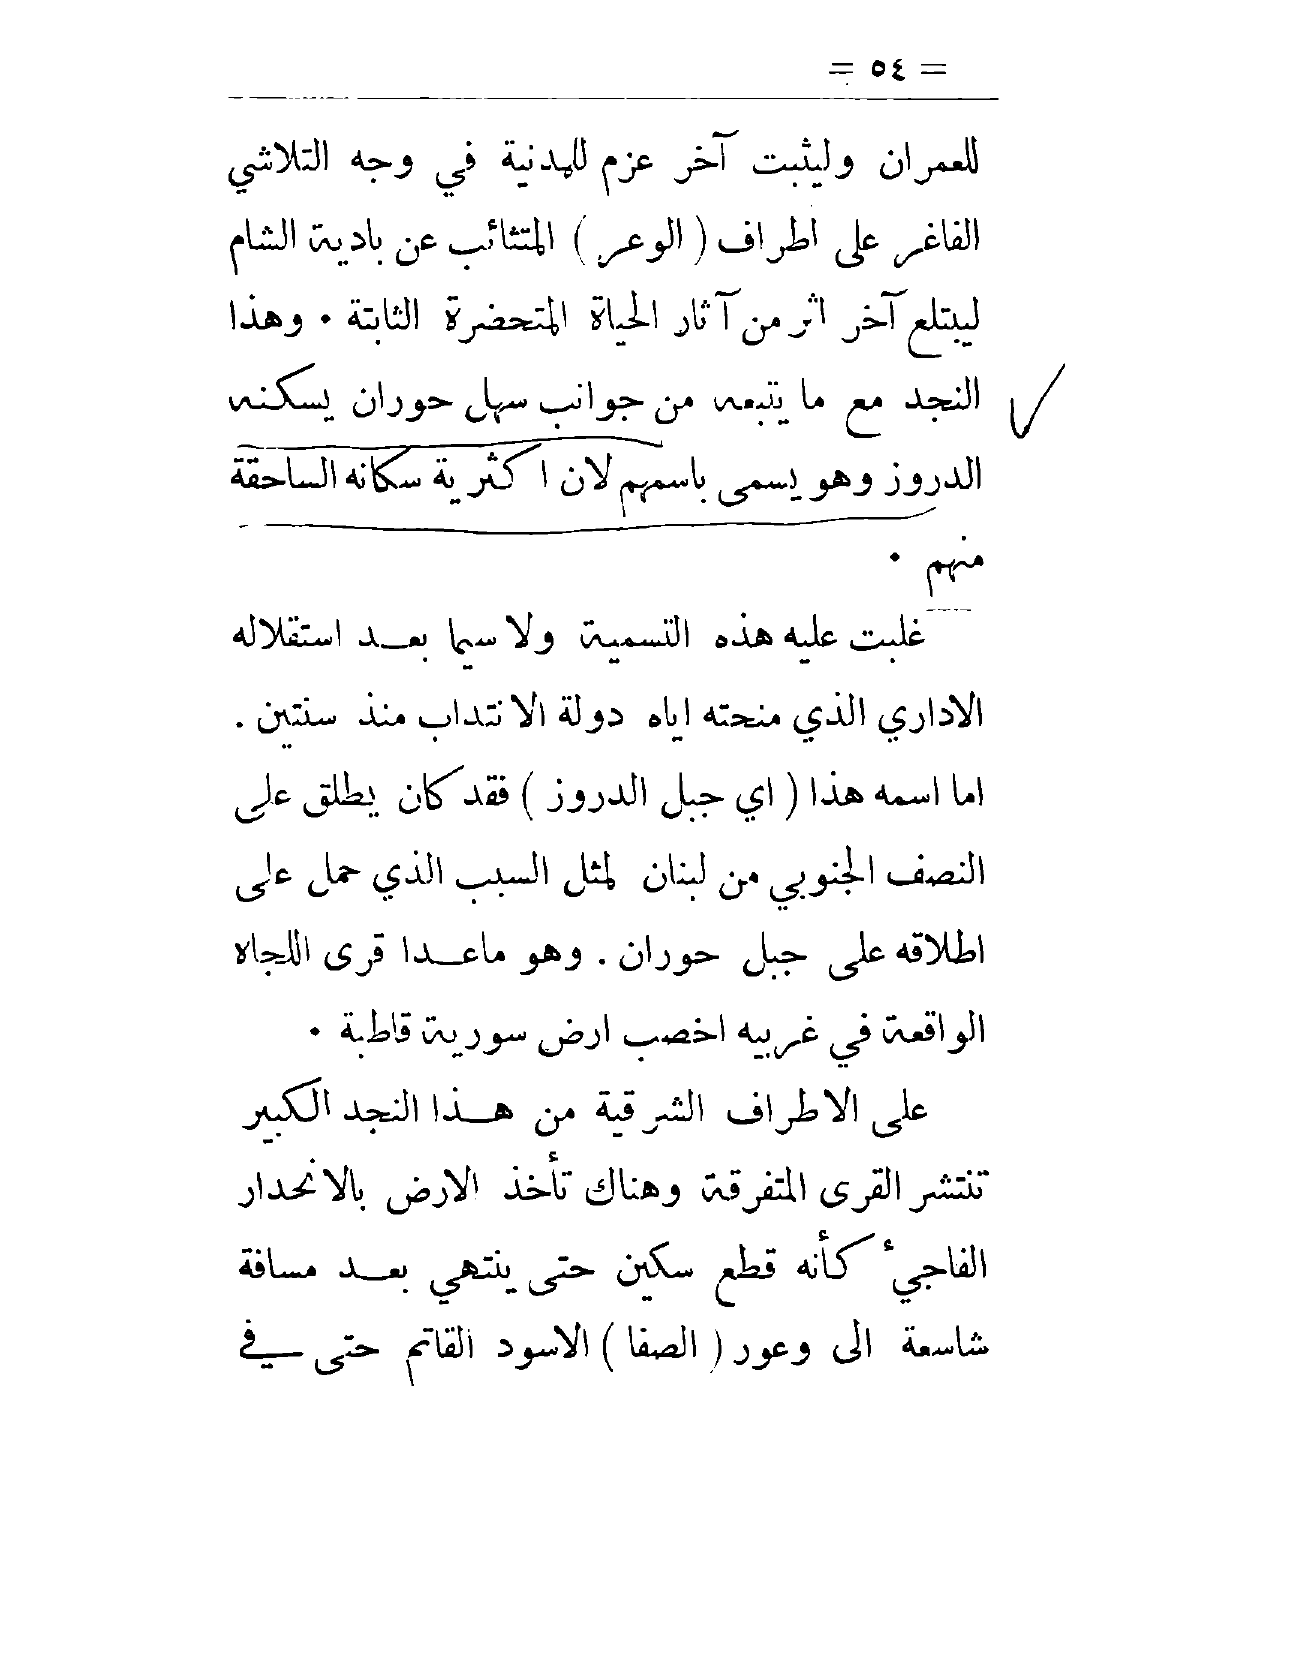 = ٥٤ =
للعمران وليثبت آخر عزم للمدنية في وجه التلاشي
الفاغر على اطراف ( الوعر ) المتثائب عن بادية الشام
ليبتلع آخر اثر من آثار الحياة المتحضرة الثابتة . وهذا
النجد مع ما يتبعه من جوانب سهل حوران يسكنه
الدروز وهو يسمى باسمهم لان اكثرية سكانه الساحقة
منهم .
غلبت عليه هذه التسمية ولا سيما بعد استقلاله
الاداري الذي منحته اياه دولة الانتداب منذ سنتين .
اما اسمه هذا ( اي جبل الدروز ) فقد كان يطلق على
النصف الجنوبي من لبنان لمثل السبب الذي حمل على
اطلاقه على جبل حوران . وهو ماعدا قرى اللجاه
الواقعة في غربيه اخصب ارض سورية قاطبة .
على الاطراف الشرقية من هذا النجد الكبير
تنتشر القرى المتفرقة وهناك تأخذ الارض بالانحدار
الفاجيء كأنه قطع سكين حتى ينتهي بعد مسافة
شاسعة الى وعور ( الصفا ) الاسود القاتم حتى في